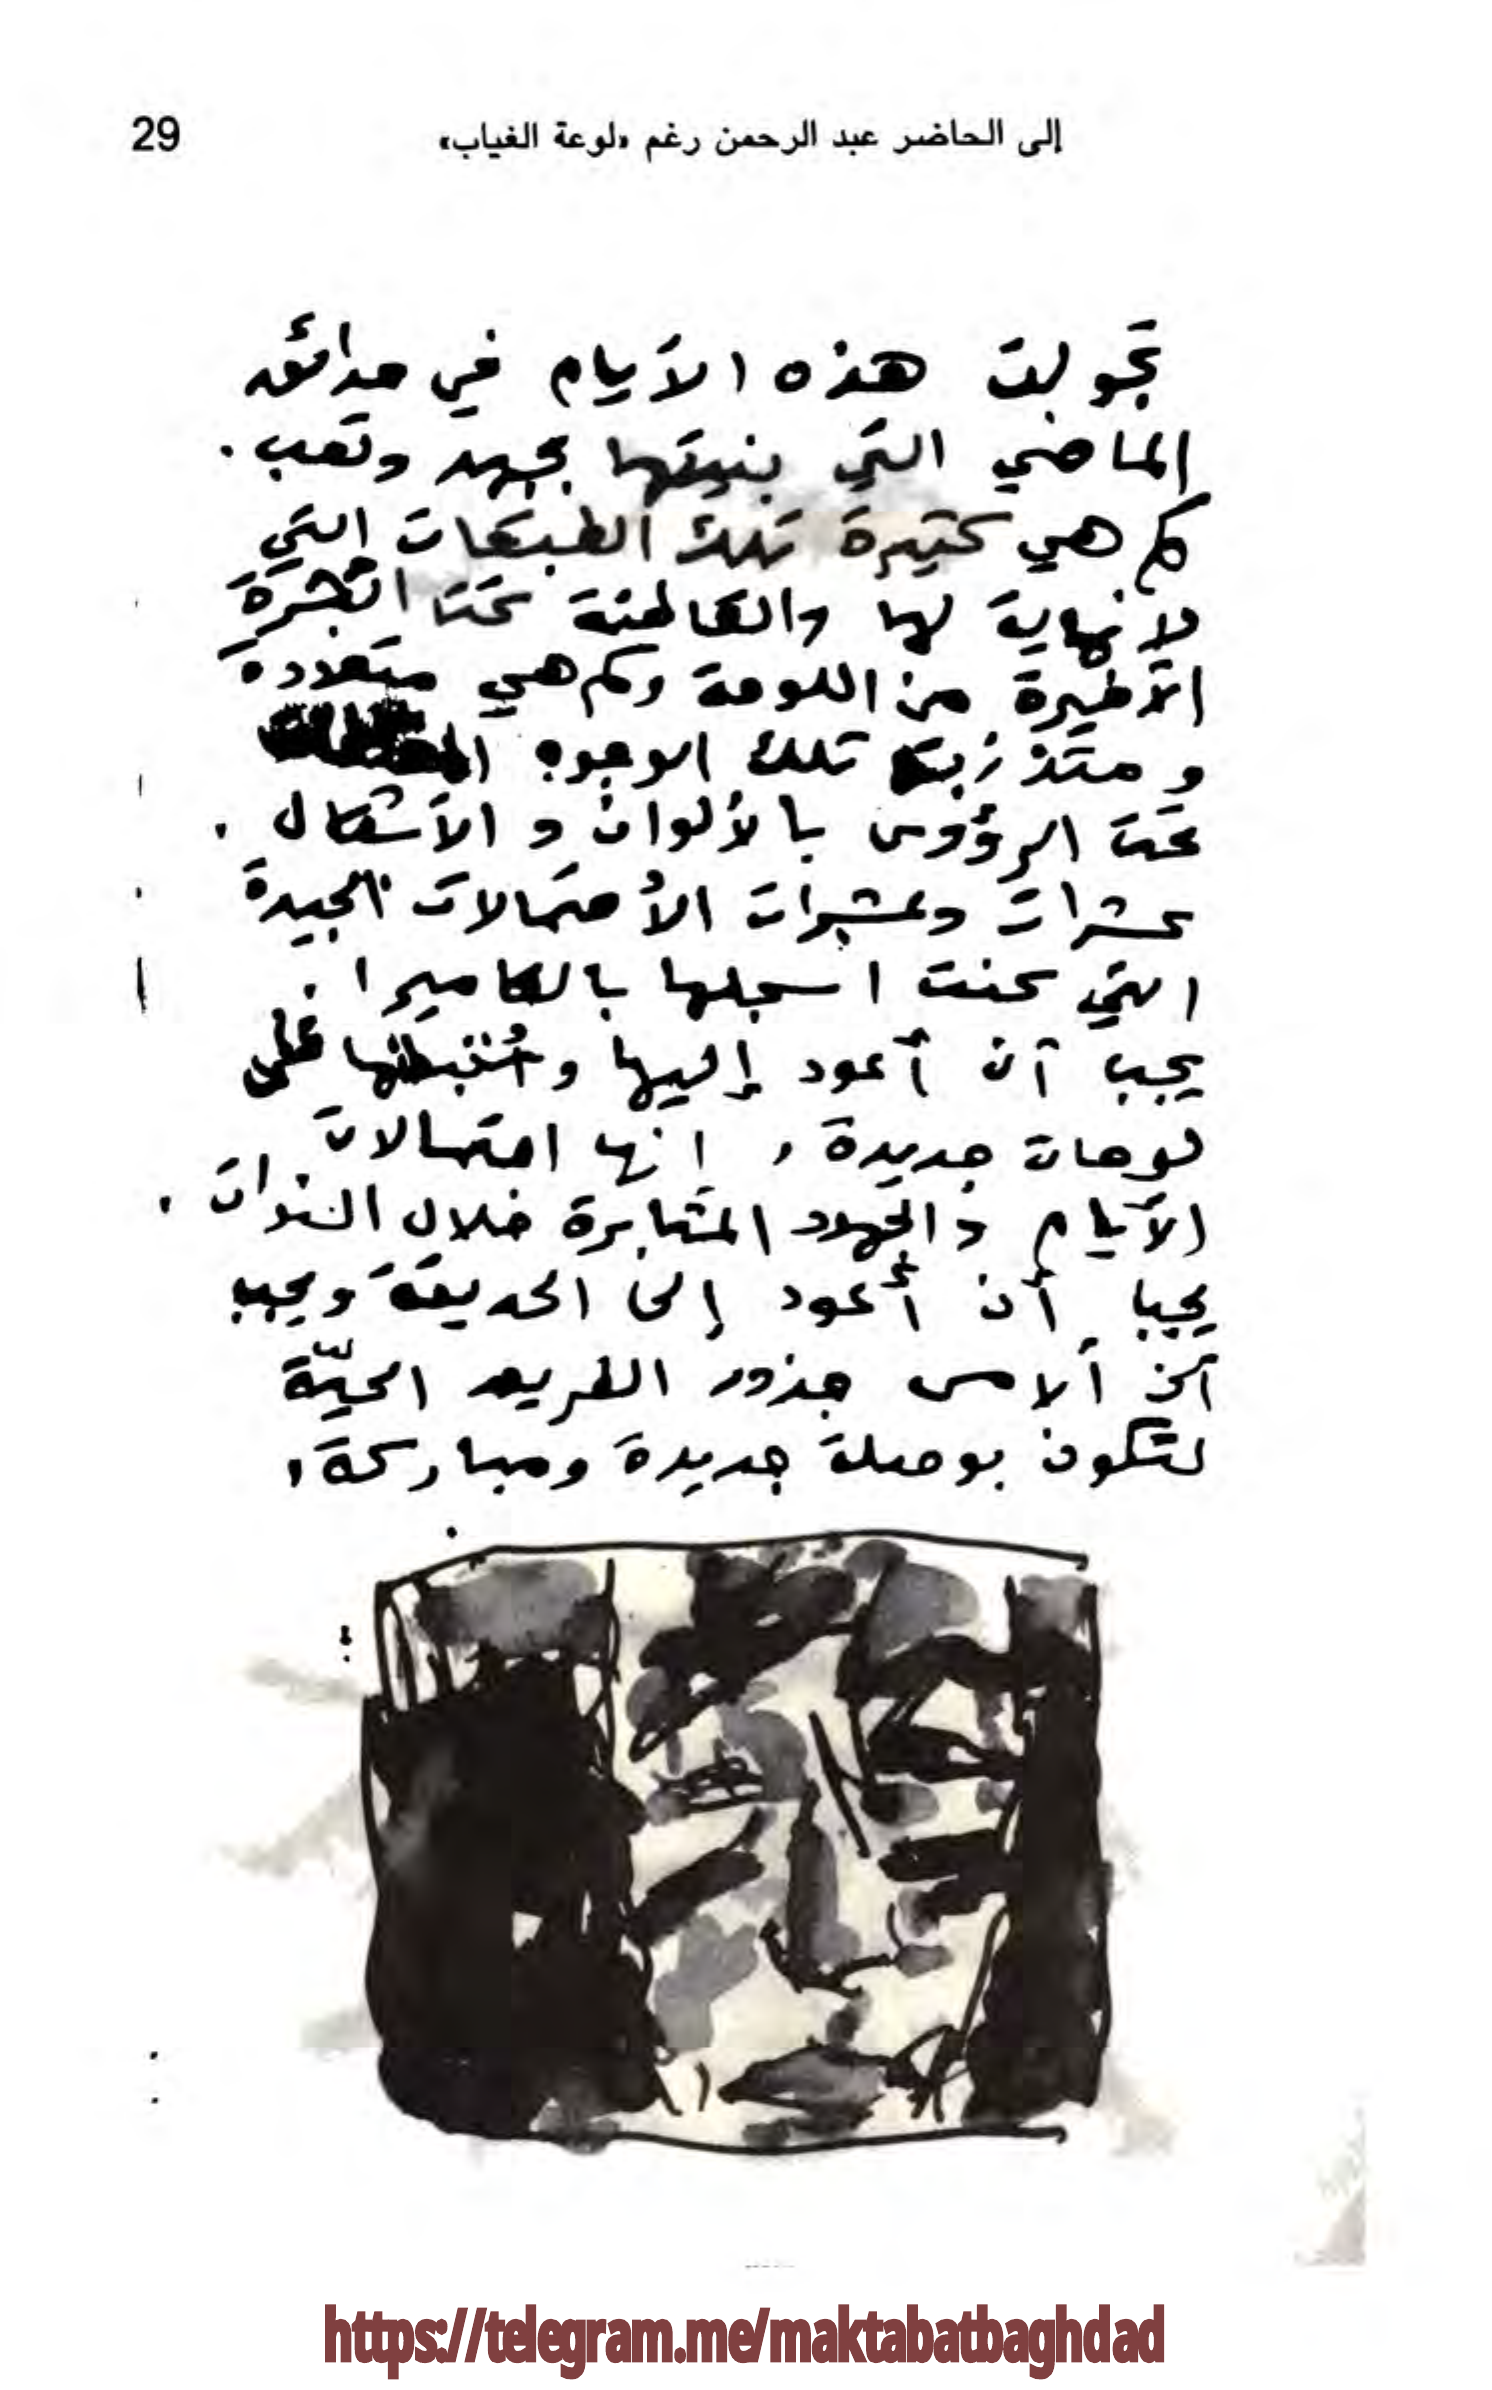 إلى الحاضر عبد الرحمن رغم «لوعة الغياب»
29
تجولت هذه الأيام في حدائق
الماضي التي بنيتها بجهد وتعب .
كم هي كثيرة تلك الطبقات التي
لا نهاية لها والكامنة تحت القشرة
الأخيرة من اللوحة وكم هي متعددة
و تلك الوجوه
تحت الرؤوس بالألوان و الأشكال .
عشرات وعشرات الأحتمالات الجيدة
التي كنت اسجلها بالكاميرا .
يجب أن أعود إليها على
لوحات جديدة , إنها احتمالات
الأيام والجهود المثابرة خلال السنوات .
يجب أن أعود إلى الحديقة ويجب
أن ألامس جذور الطريق الحيّة
لتكون بوصلة جديدة ومباركة ,
https://telegram.me/maktabatbaghdad